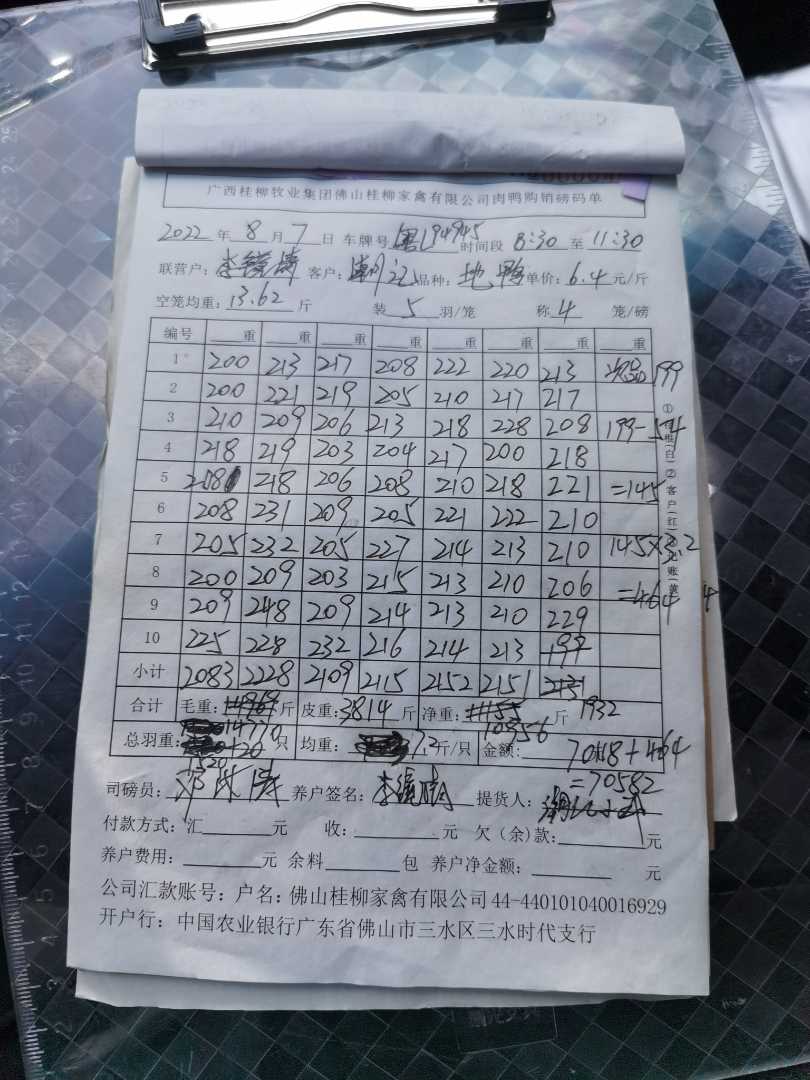 广西桂柳牧业集团佛山桂柳家禽有限公司肉鸭购销磅码单
2022 年 8 月 7 日 车牌号 94945 时间段 8:30 至 11:30
联营户: 李 客户: 潮记 品种: 地鸭 单价: 6.4 元/斤
空笼均重: 13.62 斤 装 5 羽/笼 称 4 笼/磅
编号 重 重 重 重 重 重 重 重
1 200 213 217 208 222 220 213 次品 199
2 200 221 219 205 210 217 217
3 210 209 206 213 218 228 208 199-54
4 218 219 203 204 217 200 218
5 208 218 206 208 210 218 221 =145
6 208 231 209 205 221 222 210
7 205 232 205 227 214 213 210 145×3.2
8 200 209 203 215 213 210 206 =464
9 209 248 209 214 213 210 229
10 225 228 232 216 214 213 199
小计 2083 2228 2109 2115 2152 2151 2131
合计 毛重: 14969 斤 皮重: 3814 斤 净重: 11155 斤 1932
14770 10956
总羽重: 1520 只 均重: 7.2 斤/只 金额: 70118+464
=70582
司磅员: 养户签名: 李 提货人:
付款方式: 汇 元 收: 元 欠(余)款: 元
养户费用: 元 余料 包 养户净金额: 元
公司汇款账号: 户名: 佛山桂柳家禽有限公司 44-440101040016929
开户行: 中国农业银行广东省佛山市三水区三水时代支行
①
(白)②客户(红)
账(黄)